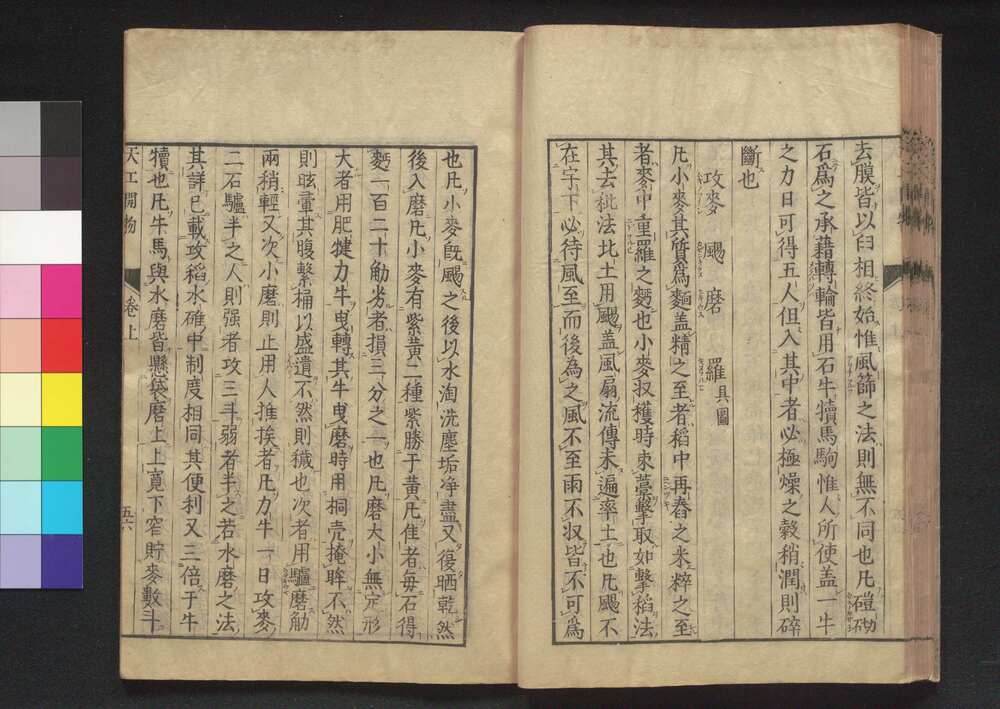 去膜皆以臼相終始惟風篩之法則無不同也凡磑砌
石爲之承藉轉輪皆用石牛犢馬駒惟人所使盖一牛
之力日可得五人但入其中者必極燥之穀稍潤則碎
斷也
攻麥 颺 磨 羅 具圖
凡小麥其質爲麵盖精之至者稻中再舂之米粹之至
者麥中重羅之麪也小麥収穫時束藁擊取如擊稻法
其去秕法北土用颺盖風扇流傳未遍率土也凡颺不
在宇下必待風至而後為之風不至雨不収皆不可爲
也凡小麥既颺之後以水淘洗塵垢净盡又復晒乾然
後入磨凡小麥有紫黄二種紫勝于黄凡佳者毎石得
麪一百二十觔劣者損三分之一也凡磨大小無定形
大者用肥犍力牛曳轉其牛曳磨時用桐壳掩眸不然
則眩暈其腹繋桶以盛遺不然則穢也次者用驢磨觔
兩稍輕又次小磨則止用人推挨者凡力牛一日攻麥
二石驢半之人則强者攻三斗弱者半之若水磨之法
其詳已載攻稻水碓中制度相同其便利又三倍于牛
犢也凡牛馬與水磨皆懸袋磨上上寛下窄貯麥數斗
天工開物 卷上 五六